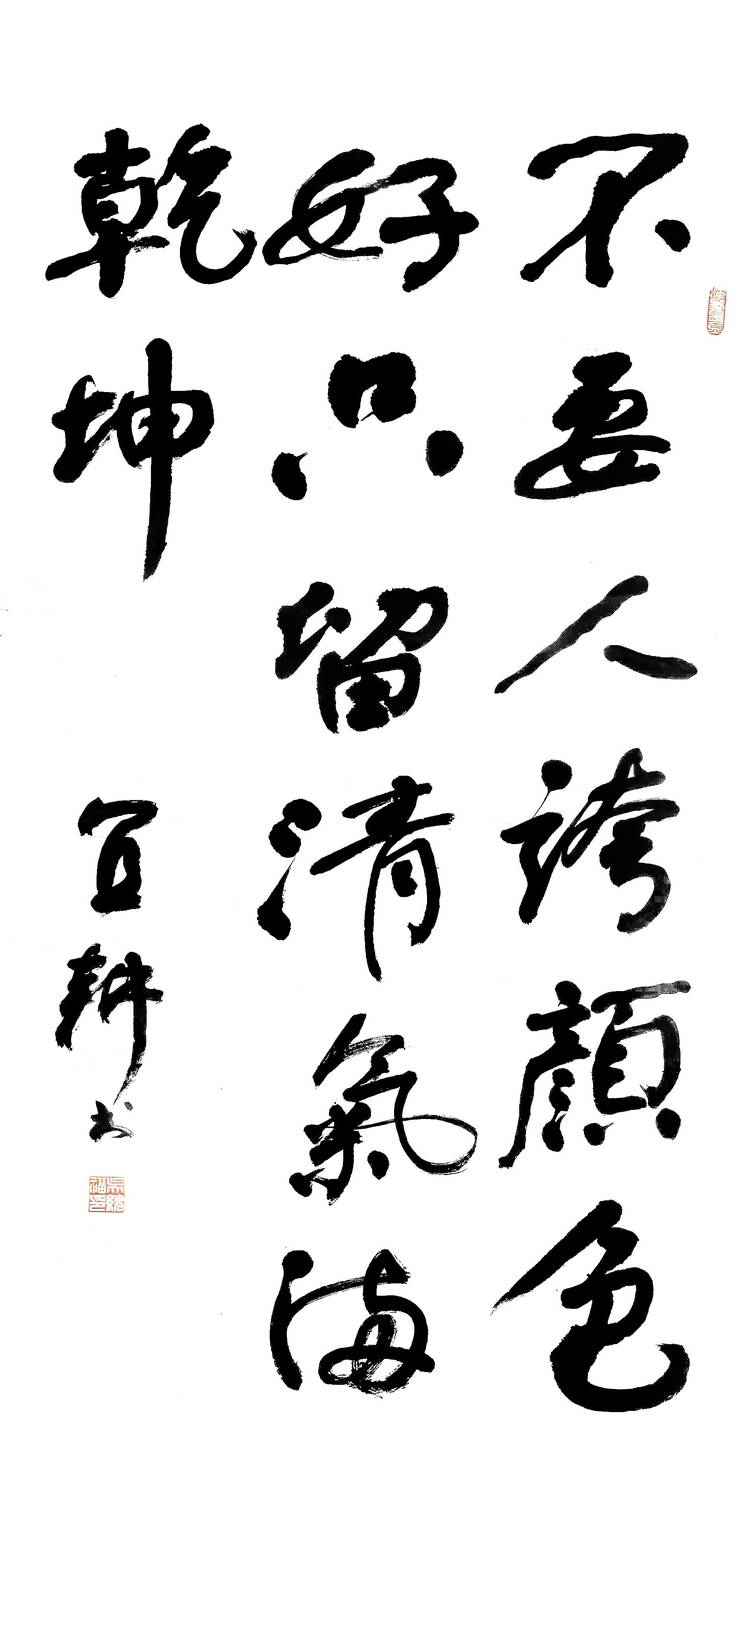 不要人誇顔色
好只留清氣滿
乾坤
宜耕书